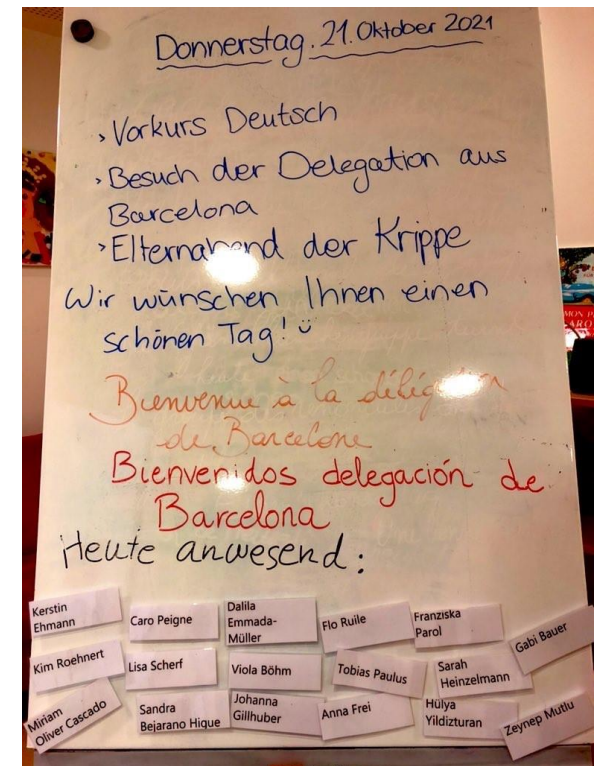 Donnerstag. 21. Oktober 2021
> Vorkurs Deutsch
> Besuch der Delegation aus
Barcelona
> Elternabend der Krippe
Wir wünschen Ihnen einen
schönen Tag! ü
Bienvenue à la délégation
de Barcelone
Bienvenidos delegación de
Barcelona
Heute anwesend:
Kerstin
Ehmann
Caro Peigne
Dalila
Emmada-
Müller
Flo Ruile
Franziska
Parol
Gabi Bauer
Kim Roehnert
Lisa Scherf
Viola Böhm
Tobias Paulus
Sarah
Heinzelmann
Miriam
Oliver Cascado
Sandra
Bejarano Hique
Johanna
Gillhuber
Anna Frei
Hülya
Yildizturan
Zeynep Mutlu